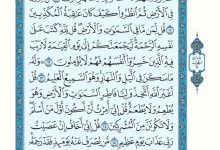 فِي ٱلْأَرْضِ ثُمَّ ٱنظُرُوا۟ كَيْفَ كَانَ عَٰقِبَةُ ٱلْمُكَذِّبِينَ
۝ قُل لِّمَن مَّا فِي ٱلسَّمَٰوَٰتِ وَٱلْأَرْضِ قُل لِّلَّهِ كَتَبَ عَلَىٰ
نَفْسِهِ ٱلرَّحْمَةَ لَيَجْمَعَنَّكُمْ إِلَىٰ يَوْمِ ٱلْقِيَٰمَةِ لَا رَيْبَ
فِيهِ ٱلَّذِينَ خَسِرُوٓا۟ أَنفُسَهُمْ فَهُمْ لَا يُؤْمِنُونَ ۝ وَلَهُۥ
مَا سَكَنَ فِي ٱلَّيْلِ وَٱلنَّهَارِ وَهُوَ ٱلسَّمِيعُ ٱلْعَلِيمُ ۝ قُلْ
أَغَيْرَ ٱللَّهِ أَتَّخِذُ وَلِيًّا فَاطِرِ ٱلسَّمَٰوَٰتِ وَٱلْأَرْضِ وَهُوَ
يُطْعِمُ وَلَا يُطْعَمُ قُلْ إِنِّيٓ أُمِرْتُ أَنْ أَكُونَ أَوَّلَ مَنْ أَسْلَمَ
وَلَا تَكُونَنَّ مِنَ ٱلْمُشْرِكِينَ ۝ قُلْ إِنِّيٓ أَخَافُ إِنْ عَصَيْتُ
رَبِّي عَذَابَ يَوْمٍ عَظِيمٍ ۝ مَّن يُصْرَفْ عَنْهُ يَوْمَئِذٍ فَقَدْ رَحِمَهُۥ